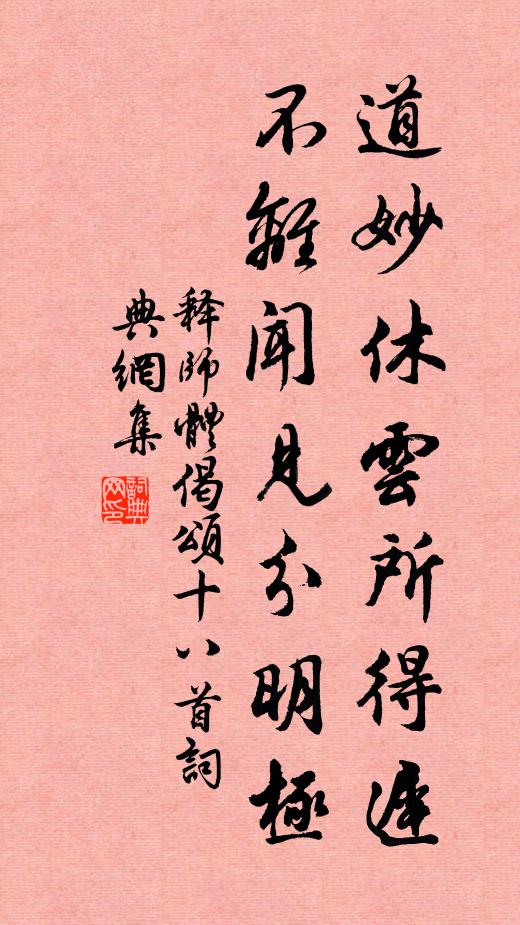 道妙休雲所得遲
不離聞見分明極
释師體偈頌十八首詞
典網集
詞典网印